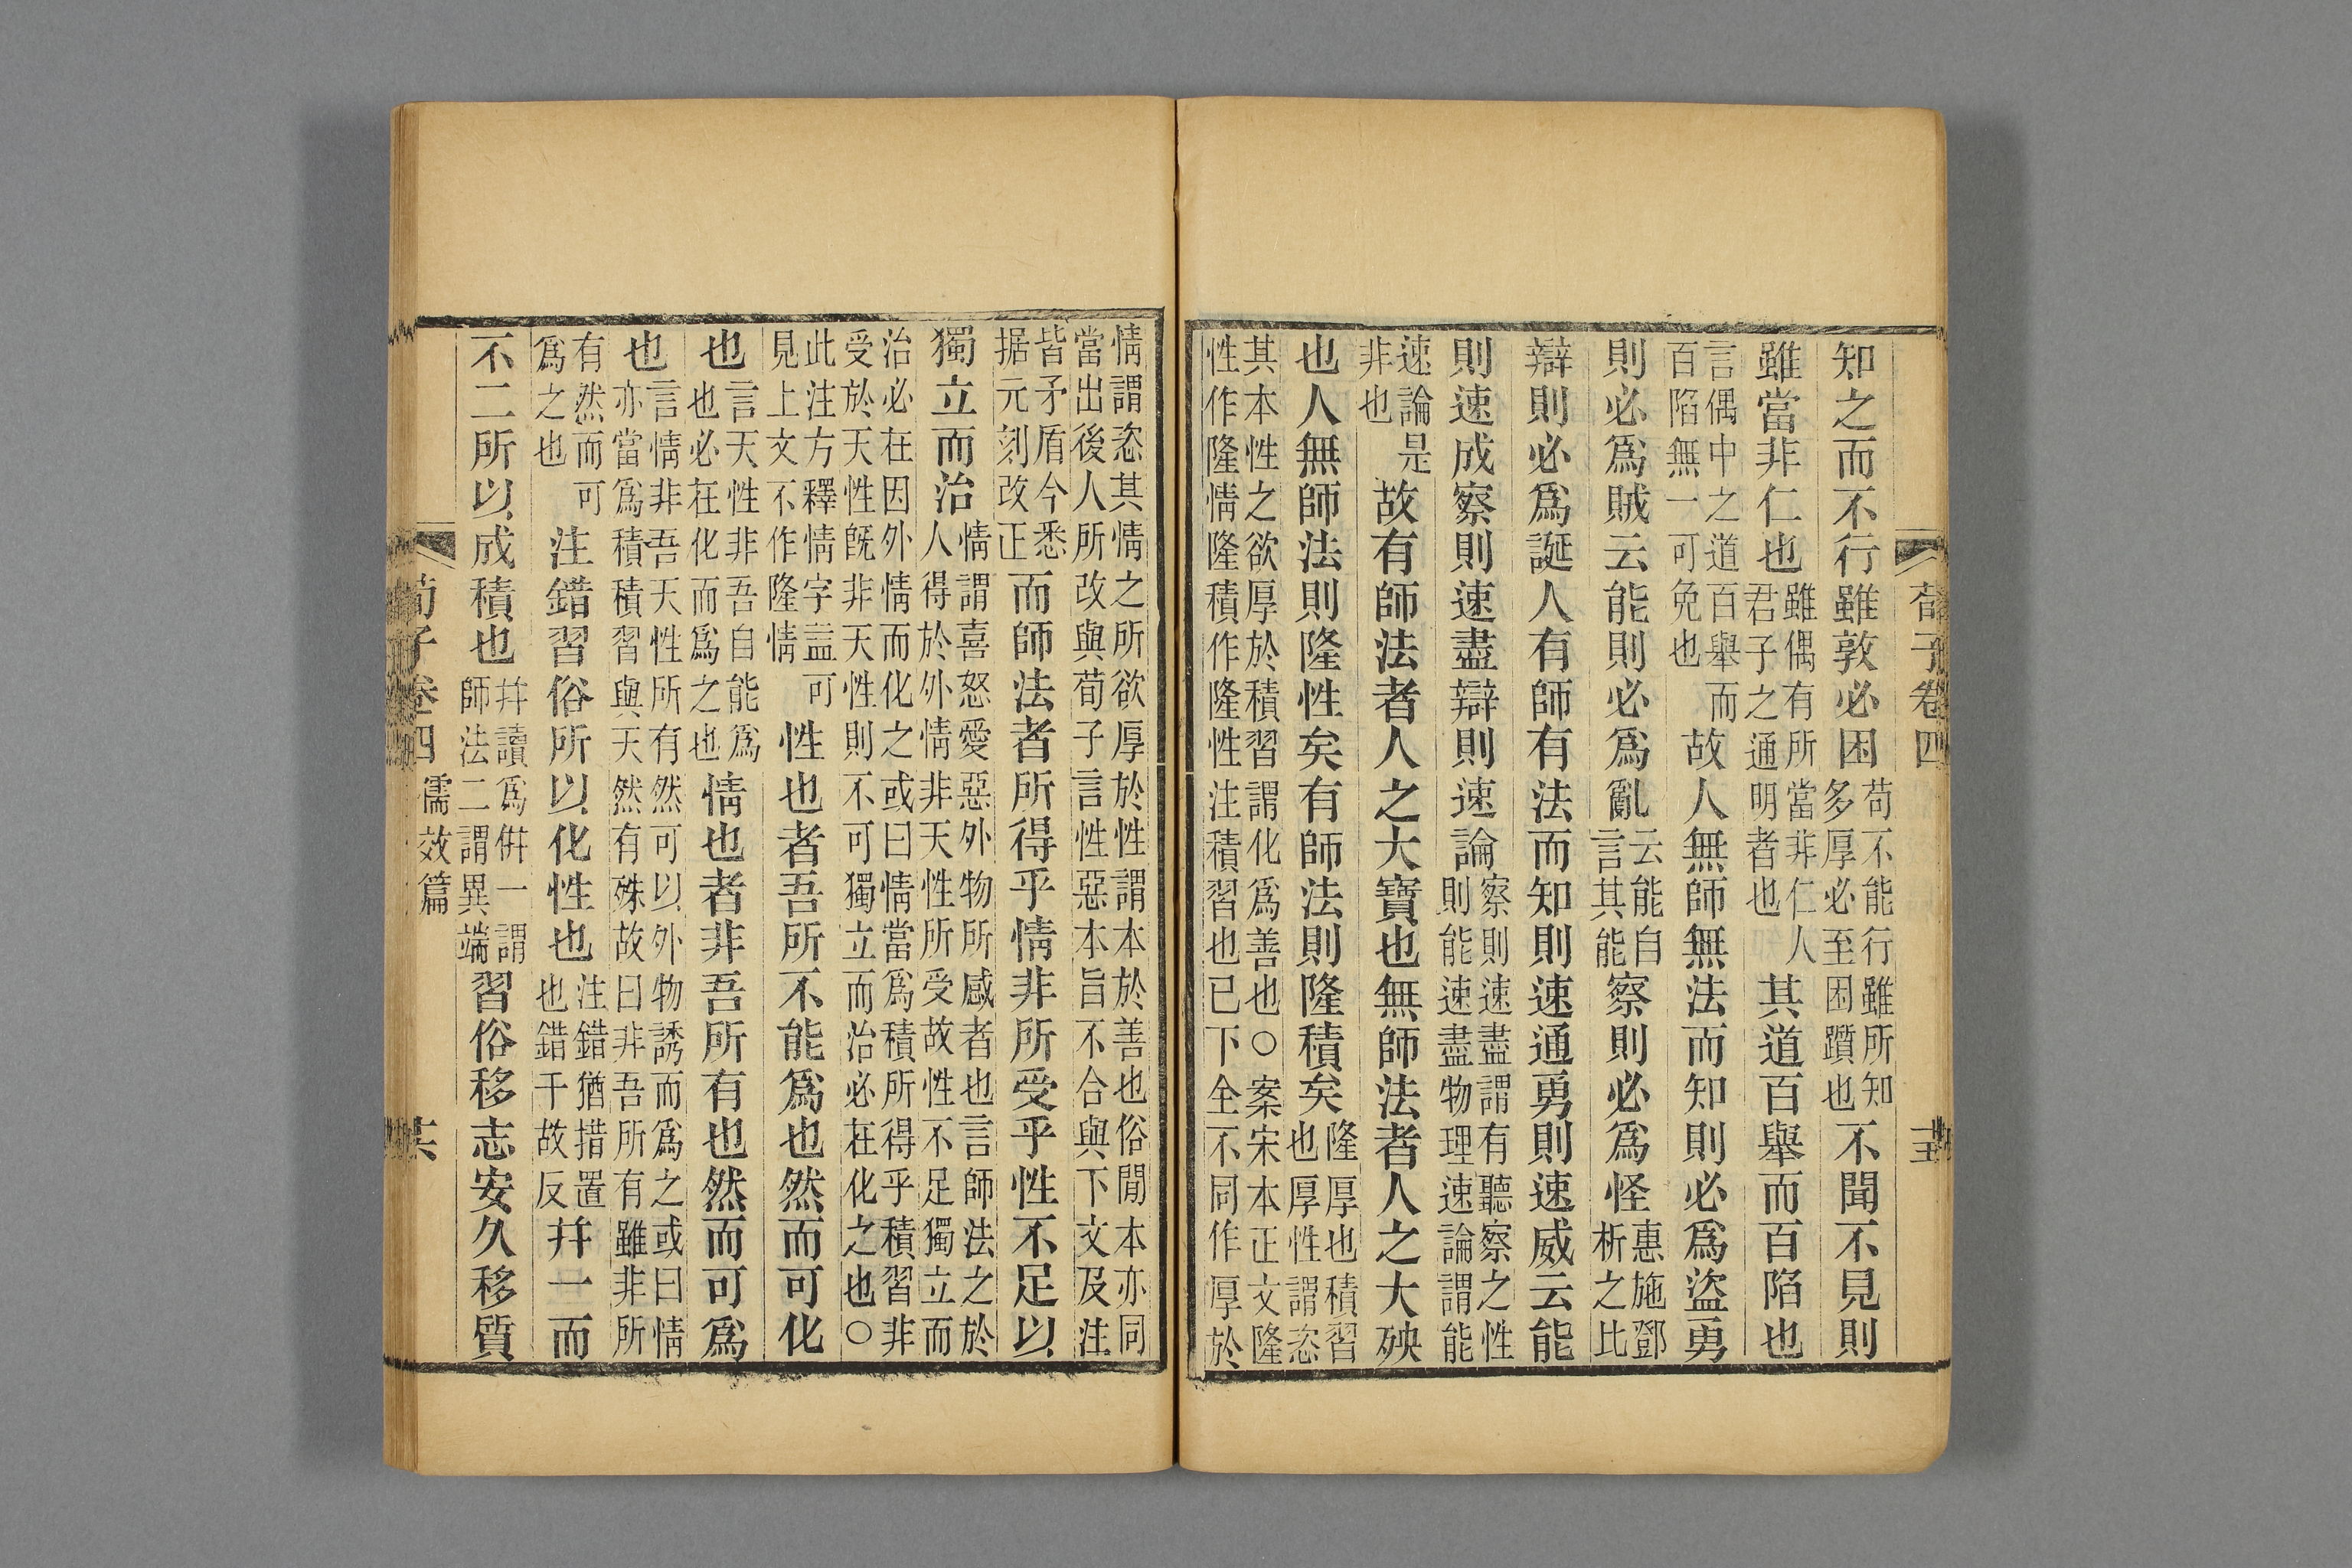 荀子卷四
知之而不行雖敦必困苟不能行雖所知多厚必至困躓也不聞不見則
雖當非仁也雖偶有所當非仁人君子之通明者也其道百舉而百陷也
言偶中之道百舉而百陷無一可免也故人無師無法而知則必爲盜勇
則必爲賊云能則必爲亂云能自言其能察則必爲怪惠施鄧析之比
辯則必爲誕人有師有法而知則速通勇則速威云能
則速成察則速盡辯則速論察則速盡謂有聽察之性則能速盡物理速論謂能
速論是非也故有師法者人之大寶也無師法者人之大殃
也人無師法則隆性矣有師法則隆積矣隆厚也積習也厚性謂恣
其本性之欲厚於積習謂化爲善也○案宋本正文隆性作隆情隆積作隆性注積習也已下全不同作厚於
情謂恣其情之所欲厚於性謂本於善也俗閒本亦同當出後人所改與荀子言性惡本旨不合與下文及注
皆矛盾今悉据元刻改正而師法者所得乎情非所受乎性不足以
獨立而治情謂喜怒愛惡外物所感者也言師法之於人得於外情非天性所受故性不足獨立而
治必在因外情而化之或曰情當爲積所得乎積習非受於天性旣非天性則不可獨立而治必在化之也○
此注方釋情字葢可見上文不作隆情性也者吾所不能爲也然而可化
也言天性非吾自能爲也必在化而爲之也情也者非吾所有也然而可爲
也言情非吾天性所有然可以外物誘而爲之或曰情亦當爲積積習與天然有殊故曰非吾所有雖非所
有然而可爲之也注錯習俗所以化性也注錯猶措置也錯千故反幷一而
不二所以成積也幷讀爲倂一謂師法二謂異端習俗移志安久移質
荀子卷四 儒效篇